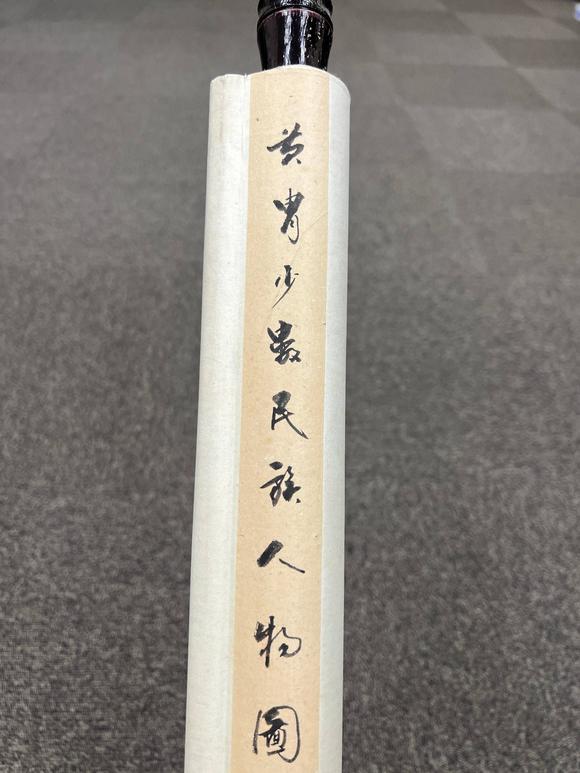 黄胄少數民族人物圖